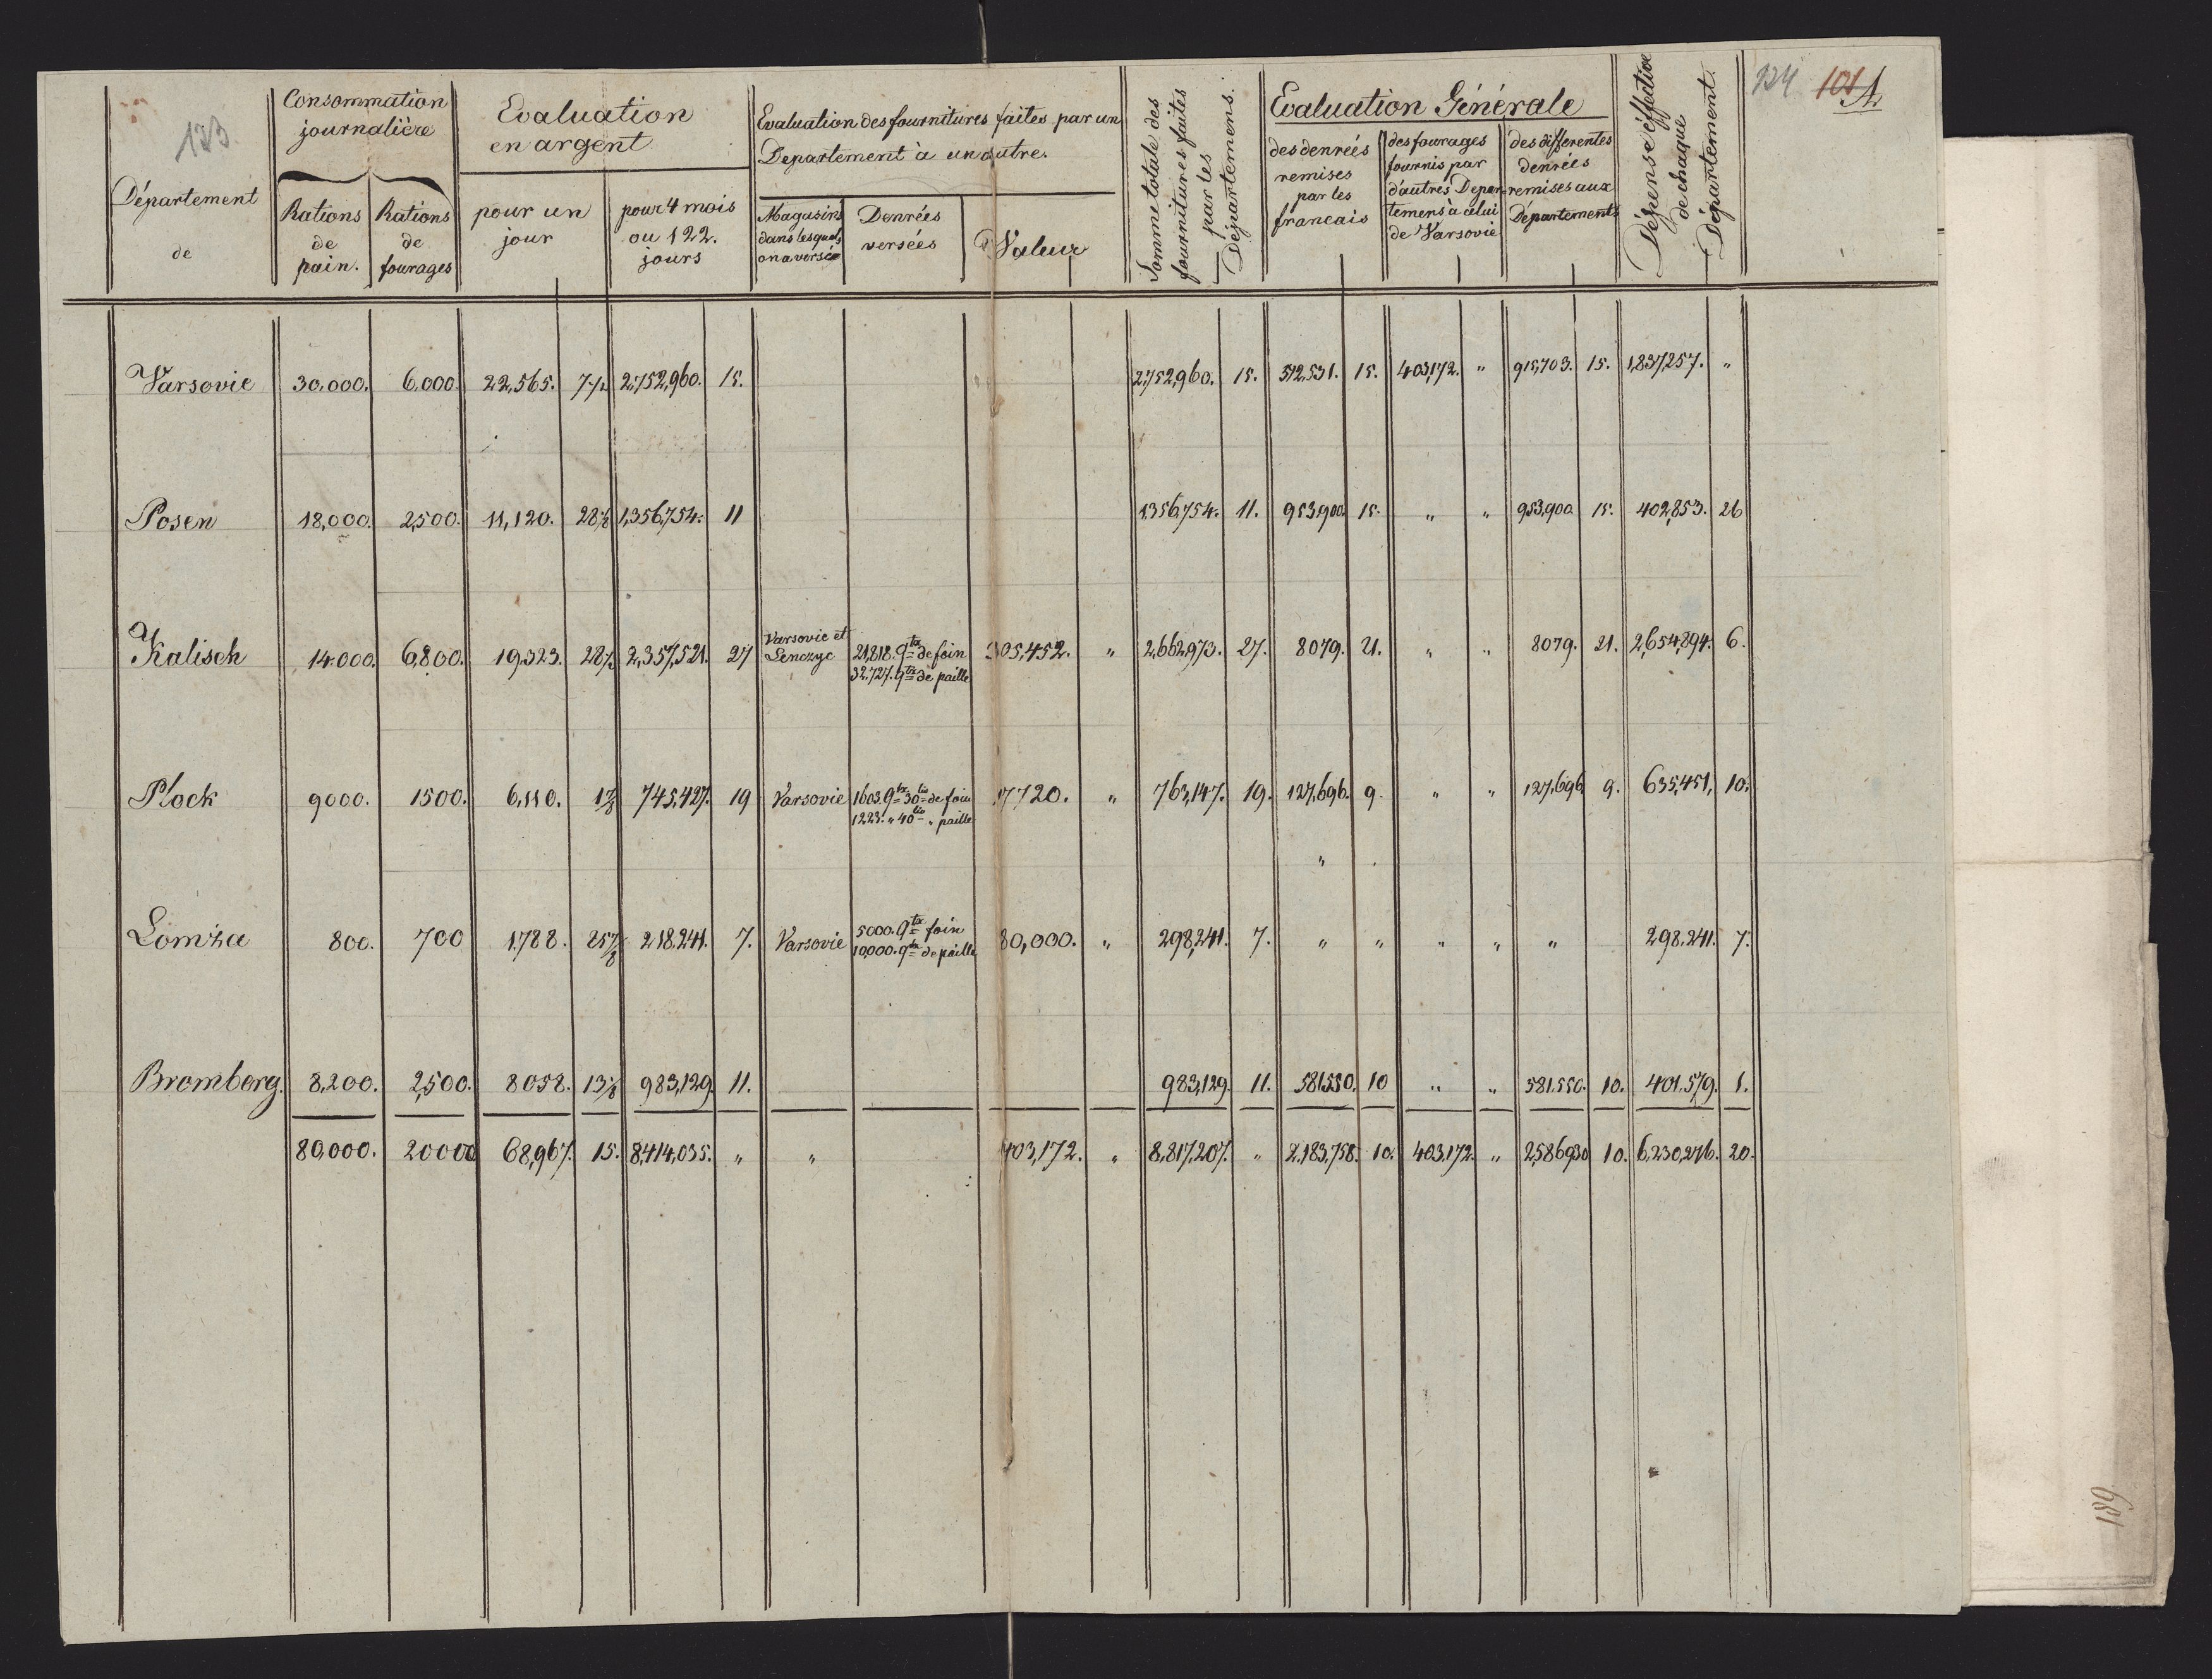 133
134 101 A
Département
de
Consommation
journalière
Rations
de
pain.
Rations
de
fourages
Evaluation
en argent.
pour un
jour
pour 4 mois
ou 122.
jours
Evaluation des fournitures faites par un
Departement à un autre.
Magasins
dans lesquels
on a versée
Denrées
versées
Valeur
Somme totale des
fournitures faites
par les
Départemens.
Evaluation Générale
des denrées
remises
par les
francais
des fourages
fournis par
d'autres Depar-
temens à celui
de Varsovie
des differentes
denrées
remises aux
Départements
Dépense éffective
de chaque
Département.
Varsovie 30,000. 6,000. 22,565. 7½ 2,752,960. 15. 2,752,960. 15. 512,531. 15. 403,172. " 915,703. 15. 1,837,257. "
Posen 18,000. 2,500. 11,120. 28⅞ 1,356,754. 11 1,356,754. 11. 953,900. 15. " " 953,900. 15. 402,853. 26
Kalisch 14.000. 6,800. 19,323. 28 2,357,521. 27 Varsovie et
Lenczyc 21,818. qtx de foin
32.727. qtx de paille 305,452. " 2,662,973. 27. 8079. 21. " " 8079. 21. 2,654,894. 6.
Plock 9000. 1500. 6,110. 1⅞ 745,427. 19 Varsovie 1603. qtx 30 lio de foin
1223. " 40 lio " paille 17720. " 763,147. 19. 127,696. 9. " " 127,696. 9. 635,451, 10.
"
Lomźa 800. 700 1.788. 25⅞ 218.241. 7. Varsovie 5000. qtx foin
10,000. qtx de paille 80,000. " 298,241. 7. " " " " " 298,241. 7.
Bromberg. 8,200. 2,500. 8058. 13⅛ 983,129. 11. 983,129. 11. 581550. 10 " " 581.550. 10. 401.579. 1.
80,000. 20000 68,967. 15. 8,414,035. " " 403,172. " 8,817,207. " 2,183,758. 10. 403,172. " 2,586930 10. 6,230,276. 20.
139